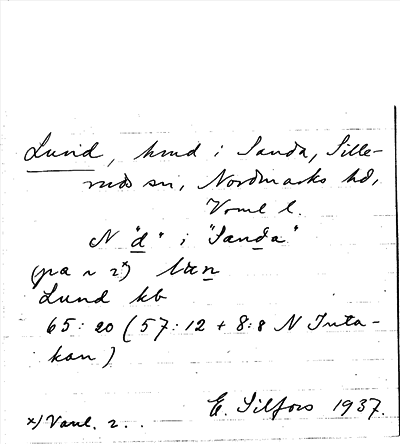 Lund, hmd i Sanda, Sille-
ruds sn, Nordmarks hd,
Verml l.
N "d" i "Sanda"
(pa ~ 2*)
Lund kb
65: 20 (57:12 + 8:8 N Inta-
kan)
E. Silfors 1937.
x) Vanl. 2..